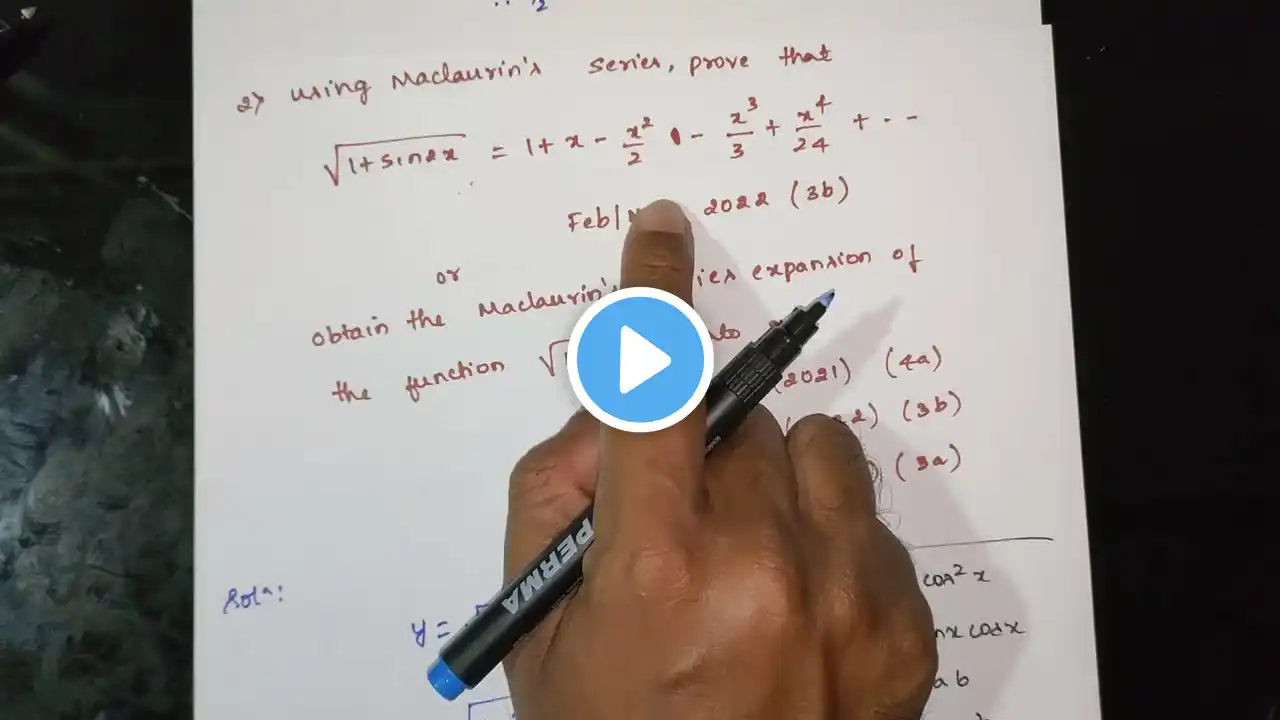 2) using Maclaurin's series, prove that
√1+sin2x = 1+x-x²/2 - x³/3 + x⁴/24 + ...
Feb| 2022 (3b)
or
obtain the Maclaurin's expansion of
the function
(2021) (4a)
(3b)
(3a)
Soln:
cos²x
y =
cosx
ab
PERMA